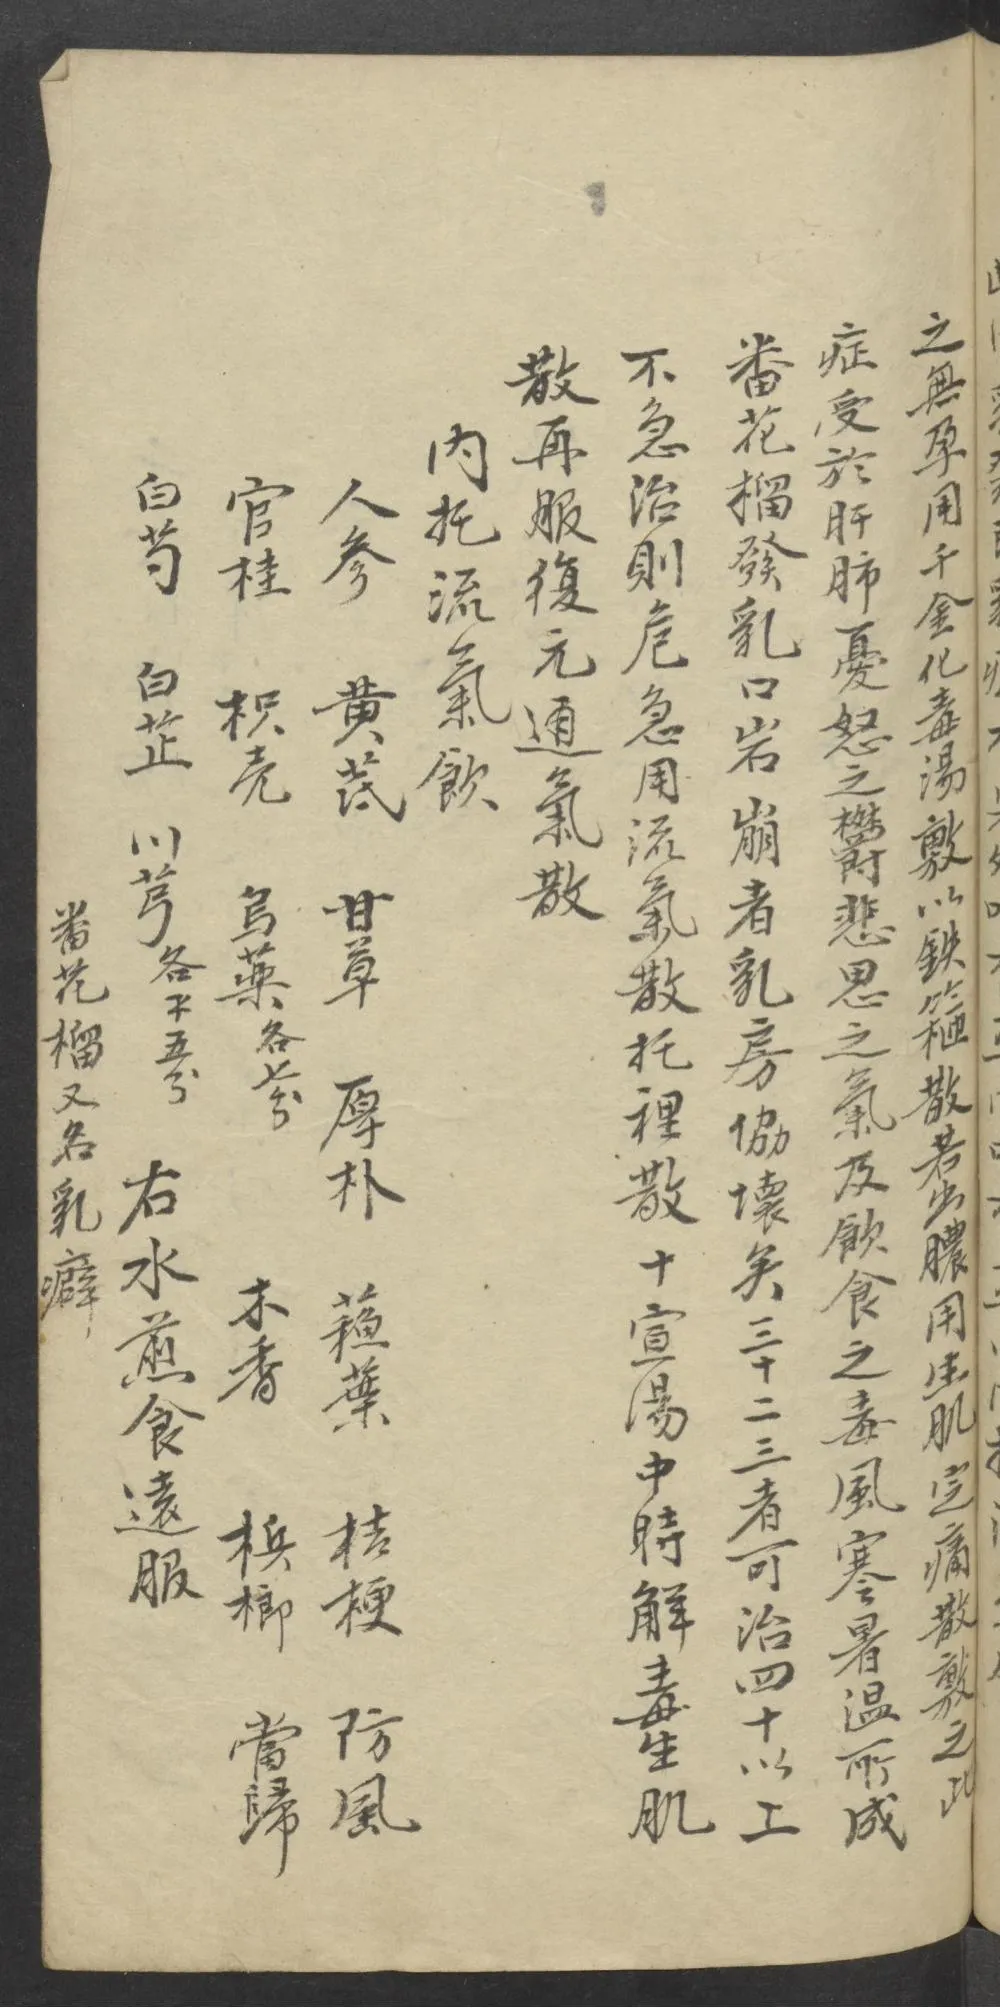 之無孕用千金化毒湯敷以鉄箍散若出膿用生肌定痛散敷之此
症受於肝肺憂怒之欝悲思之氣及飲食之毒風寒暑温所成
番花榴發乳口岩崩者乳房協壞矣三十二三者可治四十以上
不急治則危急用流氣散托裡散十宣湯中時解毒生肌
散再服復元通氣散
内托流氣飲
人参 黄芪 甘草 厚朴 蘓葉 桔梗 防風
官桂 枳壳 烏藥各七分 木香 梹榔 當歸
白芍 白芷 川芎各 五分 右水煎食遠服
番花榴又名乳癖